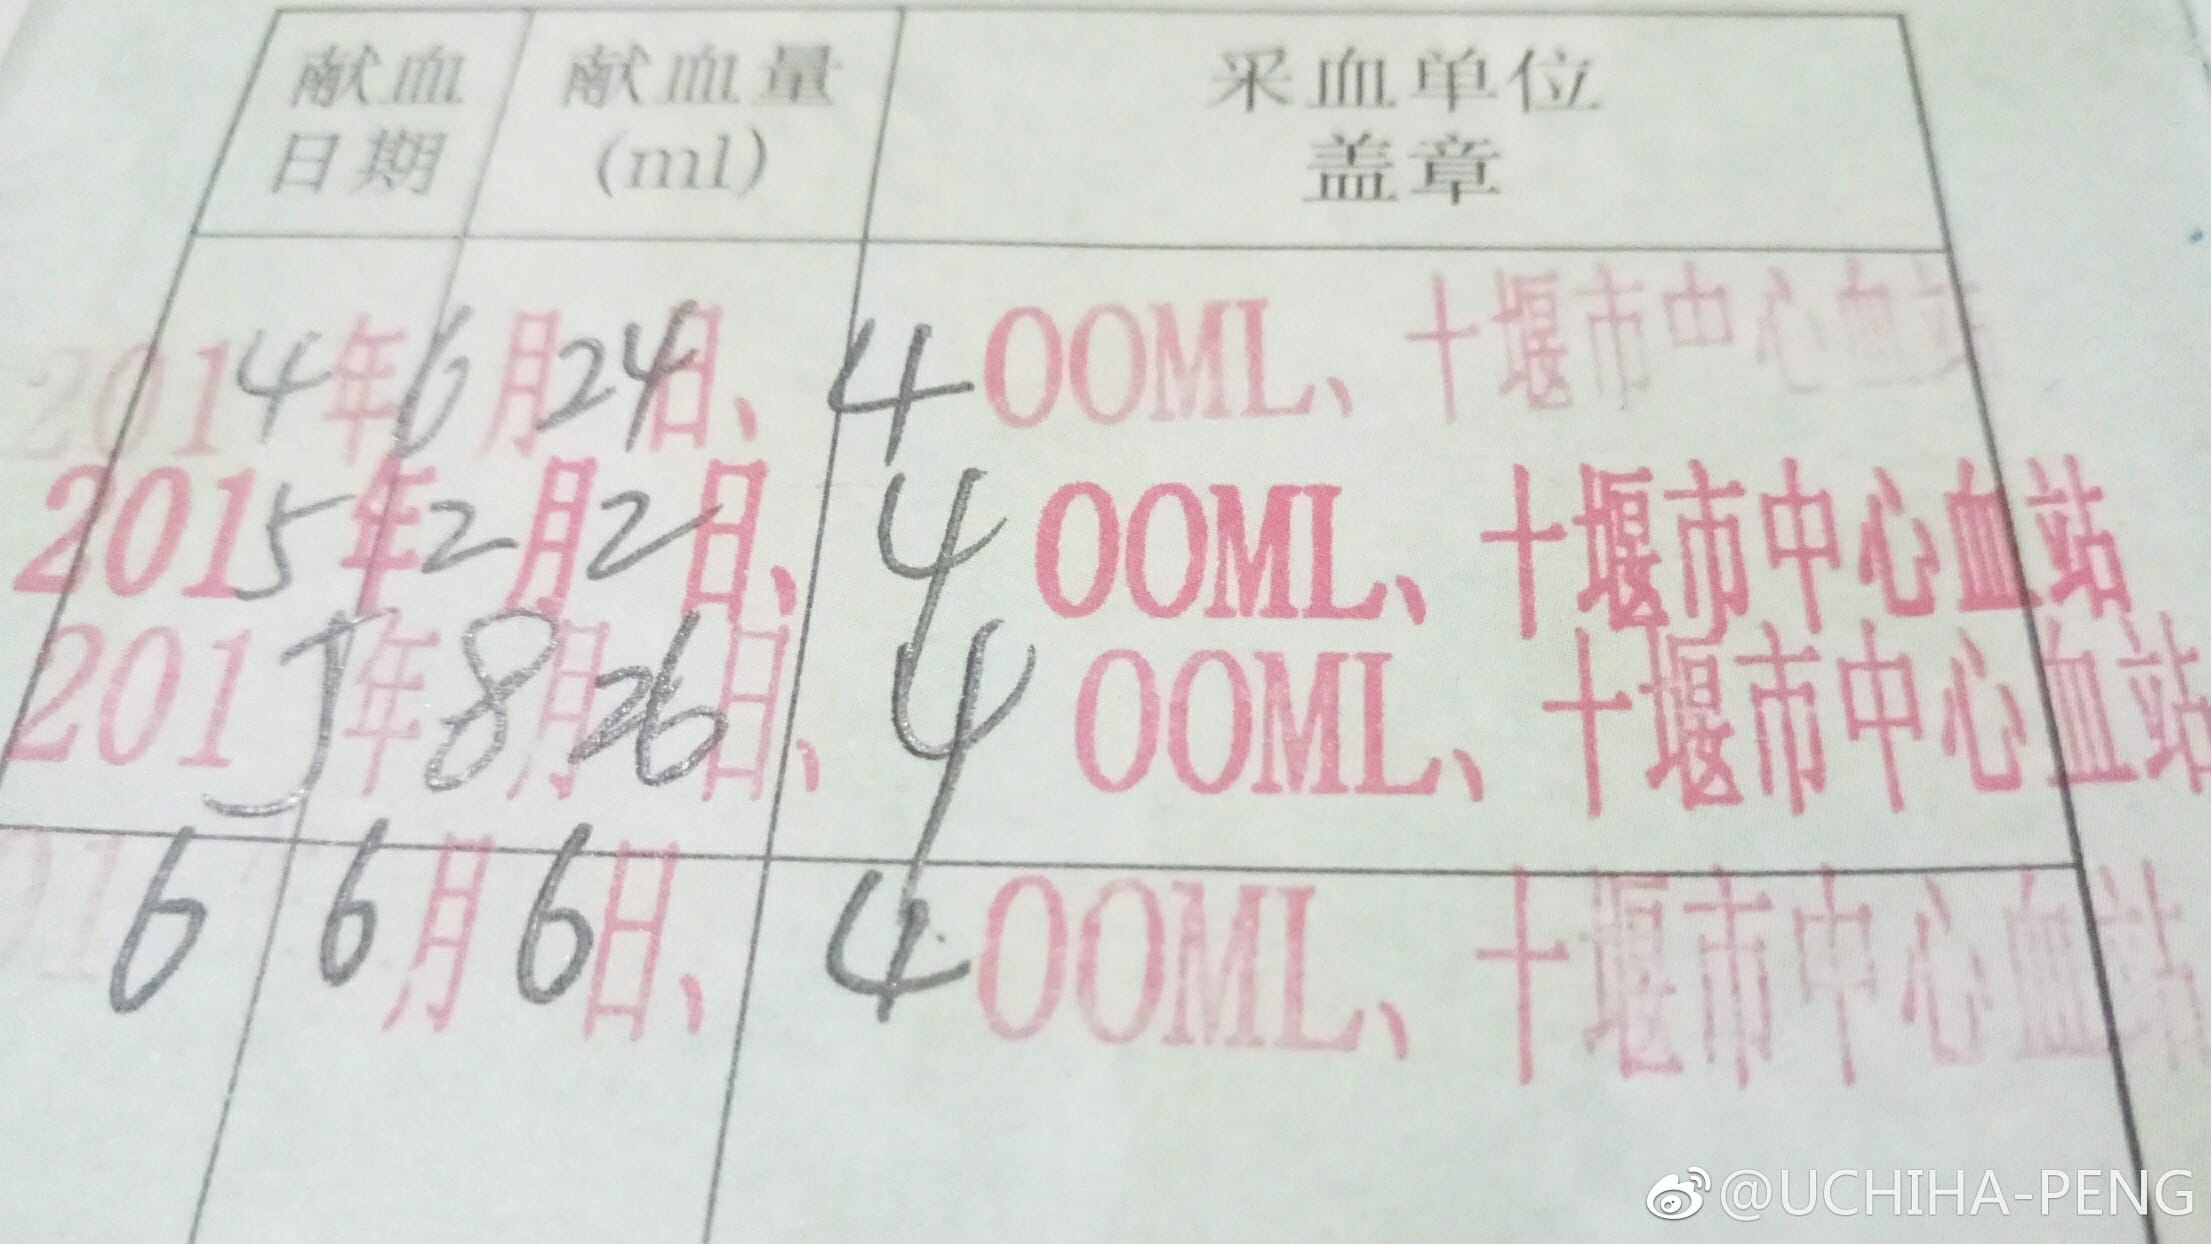 献血日期 献血量(ml) 采血单位盖章
2014年6月24日、400ML、十堰市中心血站
2015年2月2日、400ML、十堰市中心血站
2015年8月26日、400ML、十堰市中心血站
2016 6月6日、400ML、十堰市中心血站
@UCHIHA-PENG